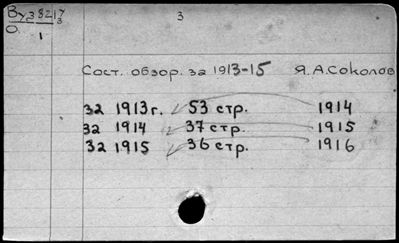 3
О. 1
Сост. обзор. за 1913-15 Я. А. Соколов
за 1913 г. 53 стр. 1914
за 1914 37 стр. 1915
за 1915 36 стр. 1916